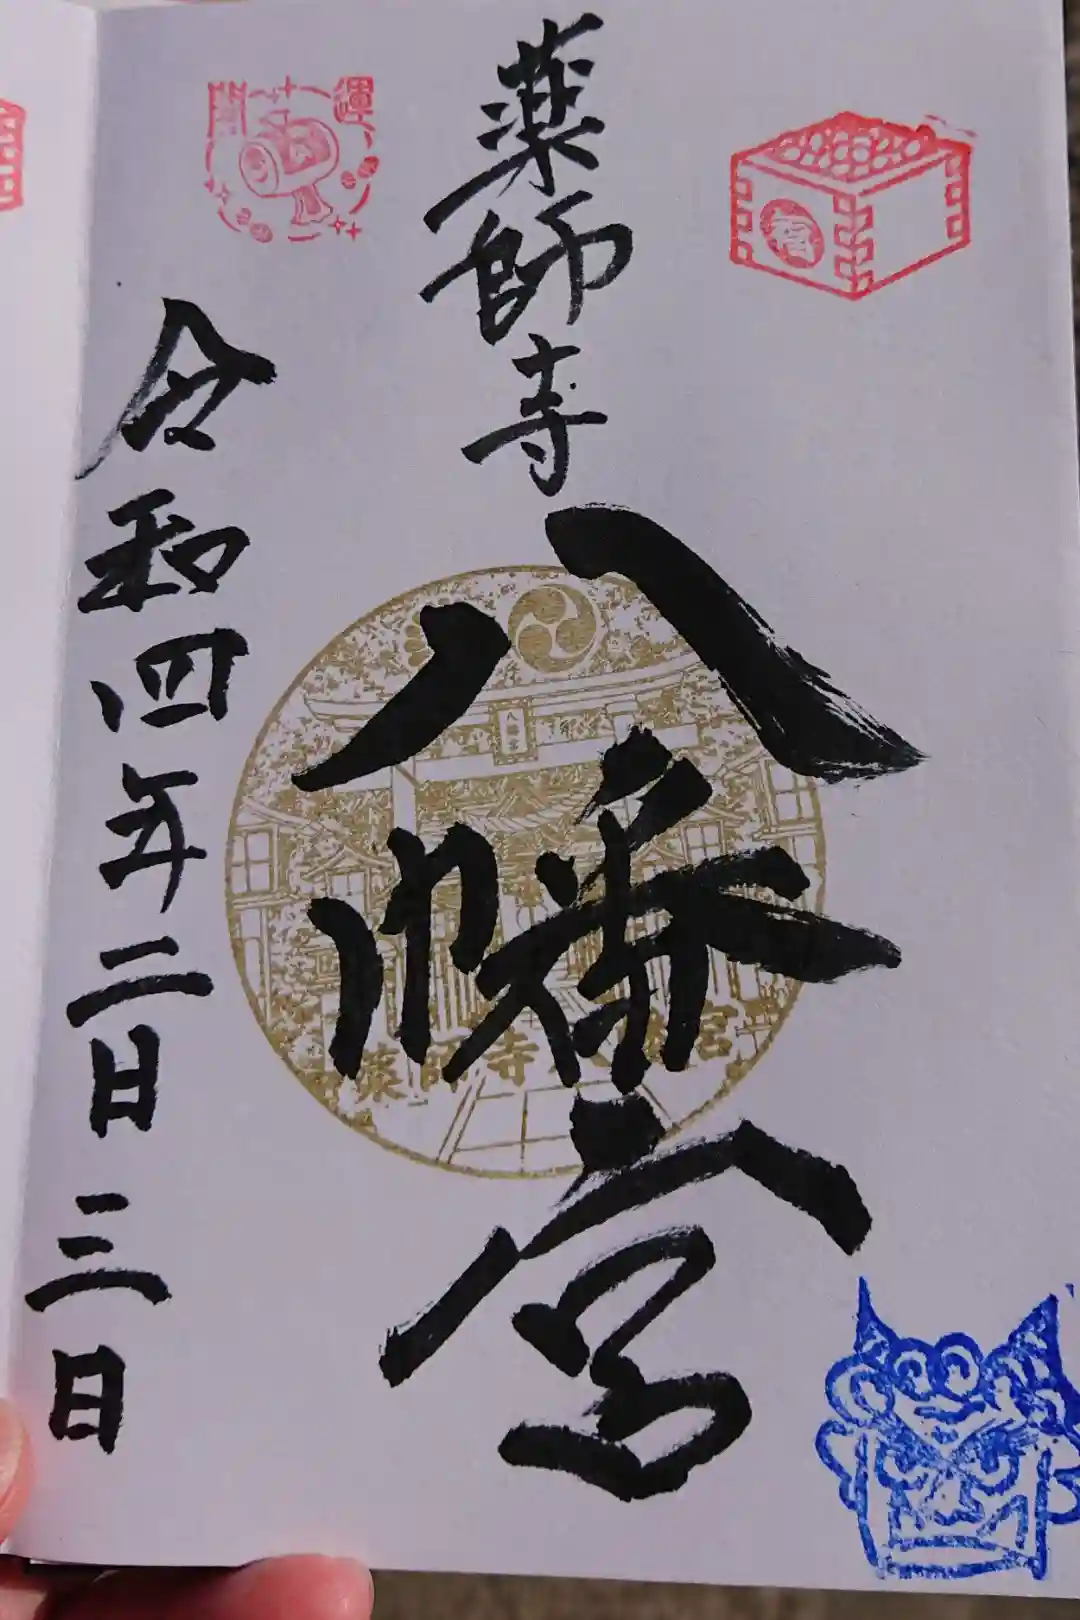 薬師寺
八幡宮
令和四年二日三日
開運
福
八幡宮
薬師寺八幡宮